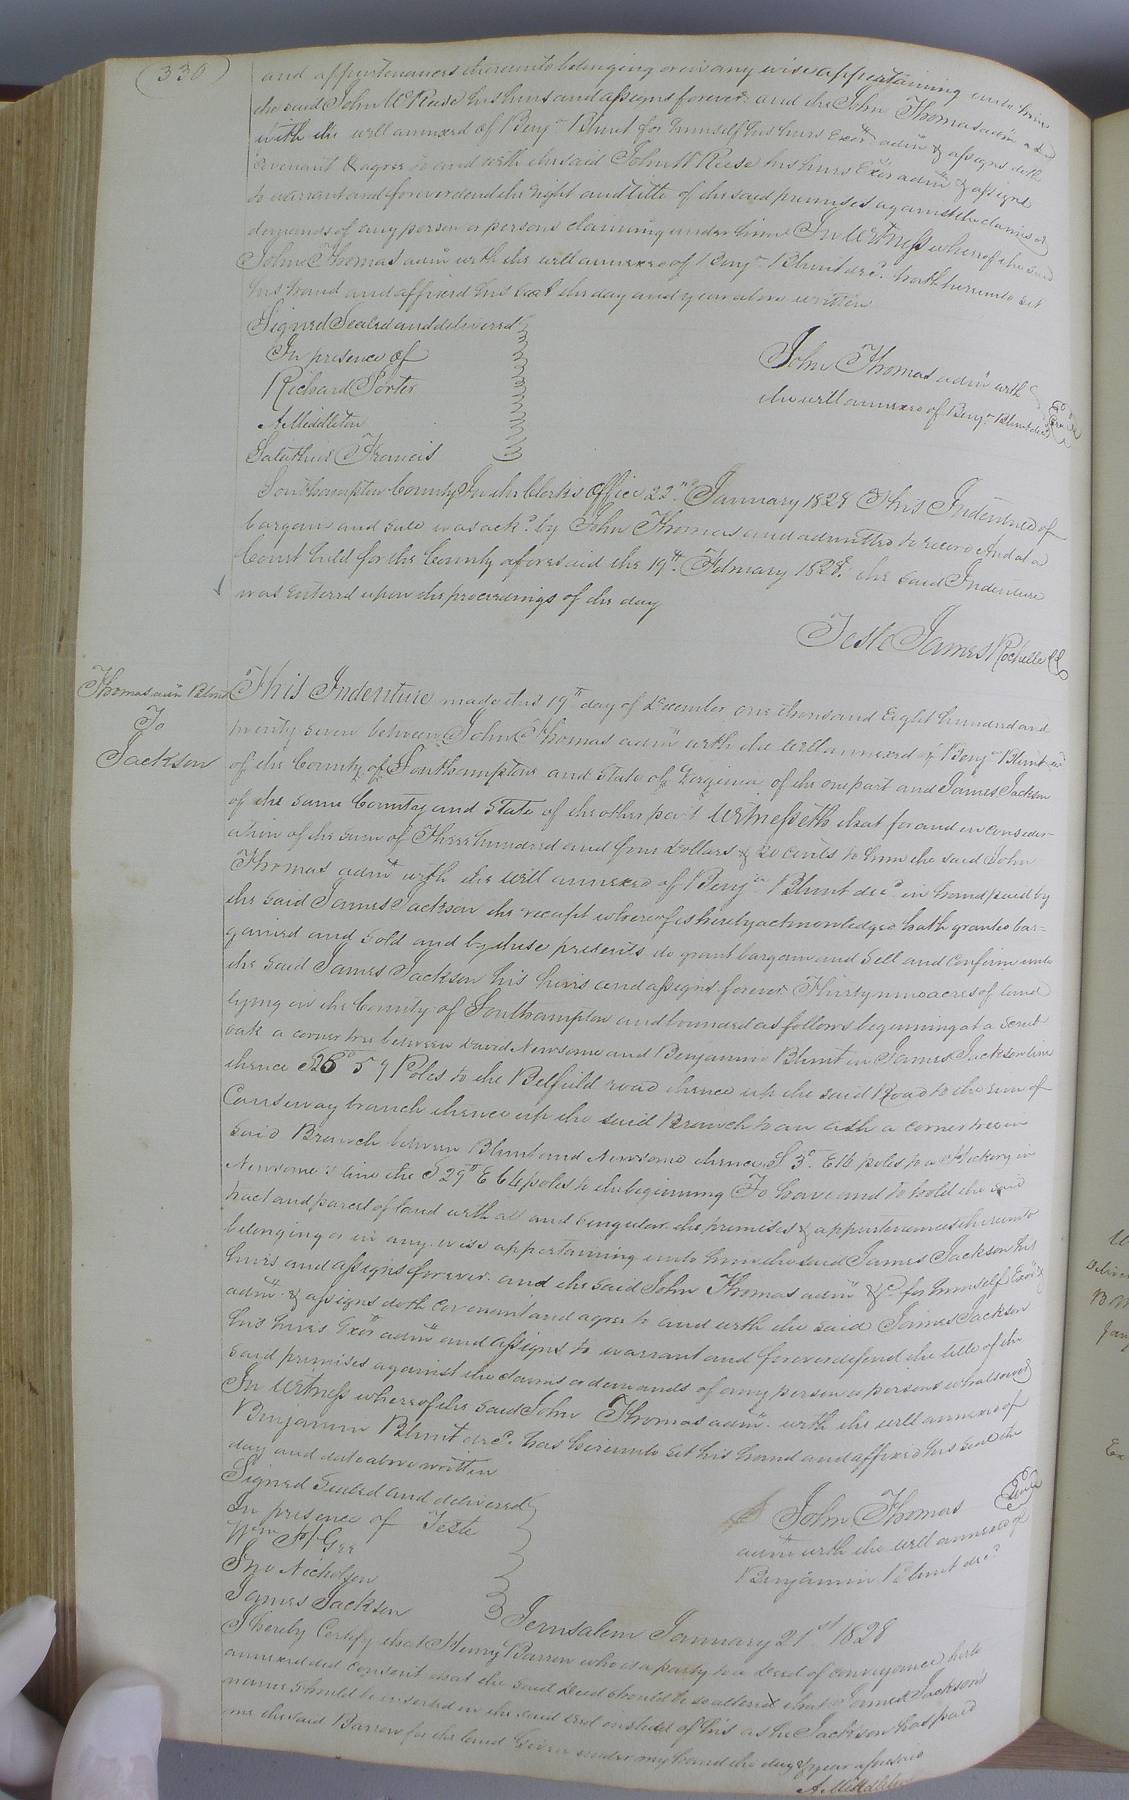 (330)
and appurtenances thereunto belonging or in any wise appertaining unto him
the said John W Reese his heirs and assigns forever and the John Thomas adm
with the will annexed of Benjn Blunt for himself his heirs Exors adm & assigns doth
covenant & agree to and with the said John W Reese his heirs Exors adm & assigns
to warrant and forever defend the right and title of the said premises against the claims or
demands of any person or persons claiming under him In Witness whereof the said
John Thomas adm with the will annexed of Benjn Blunt decd. hath hereunto set
his hand and affixed his seal the day and year above written
Signed Sealed and delivered
In presence of
Richard Porter
A. Middleton
Salathiel Francis
John Thomas adm with
the will annexed of Benjn Blunt decd
Seal
Southampton County In the Clerks Office 22nd January 1828 This Indenture of
bargain and sale was ackd. by John Thomas and admitted to record And at a
Court held for the County aforesaid the 19th February 1828. the said Indenture
was entered upon the proceedings of the day
Teste James Rochelle CC
Thomas adm Blunt
To
Jackson
This Indenture made this 19th day of December one thousand Eight hundred and
twenty seven between John Thomas adm with the will annexed of Benjn Blunt decd
of the County of Southampton and State of Virginia of the one part and James Jackson
of the same County and State of the other part Witnesseth that for and in consider-
ation of the sum of Three hundred and four dollars & 20 cents to him the said John
Thomas adm with the will annexed of Benjn Blunt decd in hand paid by
the said James Jackson the receipt whereof is hereby acknowledged hath granted bar=
gained and sold and by these presents do grant bargain and Sell and Confirm unto
the said James Jackson his heirs and assigns forever Thirty nine acres of land
lying in the County of Southampton and bounded as follows beginning at a
oak a corner tree between David Newsome and Benjamin Blunt in James Jackson line
thence 59 Poles to the Belfield road thence up the said Road to the run of
Causeway branch thence up the said Branch to an ash a corner tree in
said Branch between Blunt and Newsome thence S 3° E 16 poles to a Hickory in
Newsome's line the S 29° E 66 poles to the beginning To have and to hold the said
tract and parcel of land with all and singular the premises & appurtenances thereunto
belonging or in any wise appertaining unto him the said James Jackson his
heirs and assigns forever. and the said John Thomas adm &c. for himself Exors
adm & assigns doth covenant and agree to and with the said James Jackson
his heirs Exors adm and assigns to warrant and forever defend the title of the
said premises against the claims or demands of any person or persons whatsoever
In Witness whereof the said John Thomas adm. with the will annexed of
Benjamin Blunt decd. has hereunto set his hand and affixed his seal the
day and date above written
Signed Sealed and delivered
In presence of Teste
Wm H Gee
Jno Nicholson
James Jackson
John Thomas
Seal
adm with the will annexed of
Benjamin Blunt decd
Jerusalem January 21st 1828
I hereby Certify that Henry Barrow who is a party to a Deed of conveyance hereto
annexed did consent that the said deed should be so altered that James Jackson's
name should be inserted in the said deed instead of his as he Jackson has paid
me the said Barrow for the land Given under my hand the day & year aforesaid
A. Middleton